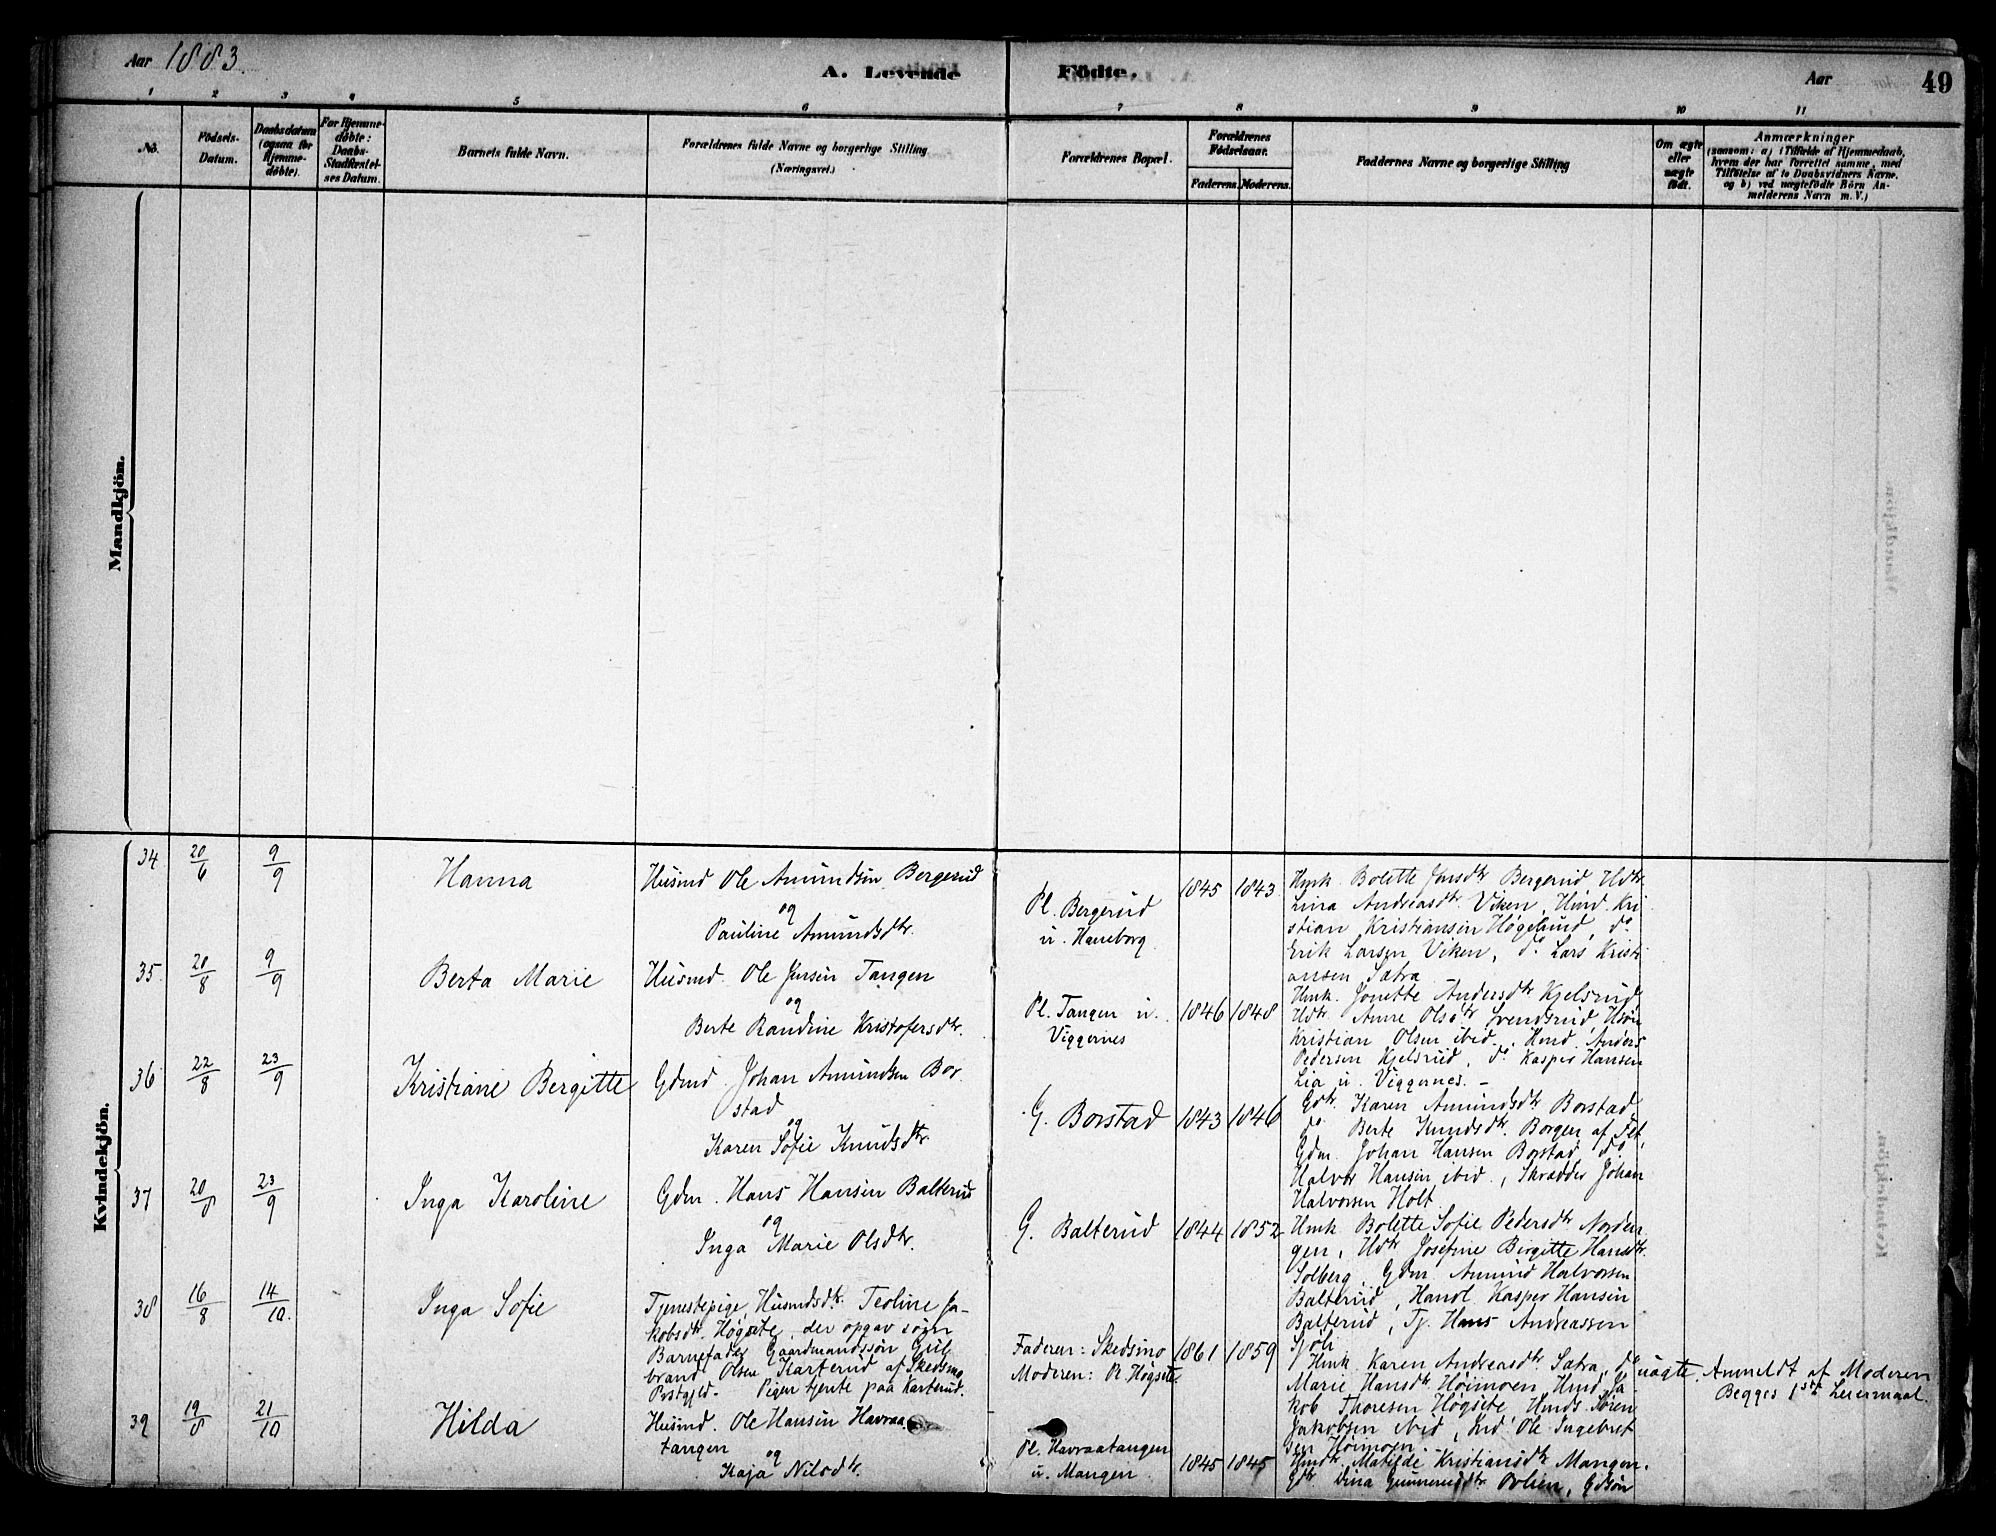 Aar 1883.
A. Levende Födte.
Aar
49
1 2 3 4 5 6 7 8 9 10 11
No.
Födsels-
Datum.
Daabsdatum
(ogsaa for
Hjemme-
döbte).
For Hjemme-
döbte:
Daabs-
Stadfæstel-
ses Datum.
Barnets fulde Navn.
Forældrenes fulde Navne og borgerlige Stilling
(Næringsvei.)
Forældrenes Bopæl.
Forældrenes
Födselsaar.
Faderens. Moderens.
Faddernes Navne og borgerlige Stilling
Om ægte
eller
uægte
födt.
Anmærkninger
(saasom: a) i Tilfælde af Hjemmedaab,
hvem der har forrettet samme, med
Tilföielse af to Daabsvidners Navne.
og b) ved uægtefödte Börn An-
melderens Navn m. V.)
Mandkjön.
Kvindekjön.
34 20/6 9/9
Hanna
Husmd Ole Amundsen Bergerud
og
Pauline Amundsdtr.
Pl. Bergerud
u. Haneborg
1845 1843
Hmk. Bolette Jensdtr Bergerud, Hdtr.
Lina Andreasdtr Viken, Hmd. Kri
stian Kristiansen Høgelund, do
Erik Larsen Viken, do Lars Kristi
ansen Satra
35 20/8 9/9
Berta Marie
Husmd. Ole Jensen Tangen
og
Berte Randine Kristofersdtr.
Pl. Tangen u.
Viggernes
1846 1848
Hmk. Jonette Andersdtr Kjelsrud
Hdtr. Anne Olsdtr Svendsrud, Hsøn
Kristian Olsen ibid., Hmd. Anders
Pedersen Kjelsrud, do Kasper Hansen
Lia u. Viggernes. –
36 22/8 23/9
Kristiane Bergitte
Gdmd. Johan Amundsen Bor-
stad
og
Karen Sofie Knudsdtr.
G. Borstad
1843 1846
Gdtr. Karen Amundsdtr Borstad,
do Berte Knudsdtr. Borgen af Fet,
Gdm. Johan Hansen Borstad do
Halvor Hansen ibid., Skrædder Johan
Halvorsen Holt
37 20/8 23/9
Inga Karoline
Gdm. Hans Hansen Balterud
og
Inga Marie Olsdtr.
G. Balterud
1844 1852
Hmk. Bolette Sofie Pedersdtr Norden
gen, Hdtr. Josefine Birgitte Hansdtr.
Solberg, Gdm. Amund Halvorsen
Balterud, Handl. Kasper Hansen
Balterud, Tj. Hans Andreassen
Sjøli
38 16/8 14/10.
Inga Sofie
Tjenestepige, Husmdsdtr. Teoline Ja-
kobsdtr. Høgsete, der opgav som
Barnefader Gaardmandssøn Gul
brand Olsen Karterud af Skedsmo
Postgjld. Pigen tjente paa Karterud.
Faderen: Skedsmo
Moderen: P. Høgsete
1861 1859
Hmk. Karen Andreasdtr Satra, do
Marie Hansdtr Høimoen, Hmd. Ja-
kob Thoresen Høgsete, Hmds. Søren
Jakobsen ibid, Ind. Ole Ingebret
sen Høimoen
uægte.
Anmeldt af Moderen
Begges 1ste Leiermaal.
39 19/8 21/10
Hilda
Husmd. Ole Hansen Havraa
tangen
og
Kaja Nilsdtr.
Pl. Havraatangen
u. Mangen
1845 1845
Hmdtr. Matilde Kristiansdtr Mangen.
Gdtr. Dina Gunnerusdtr Ovlien, Gdsøn